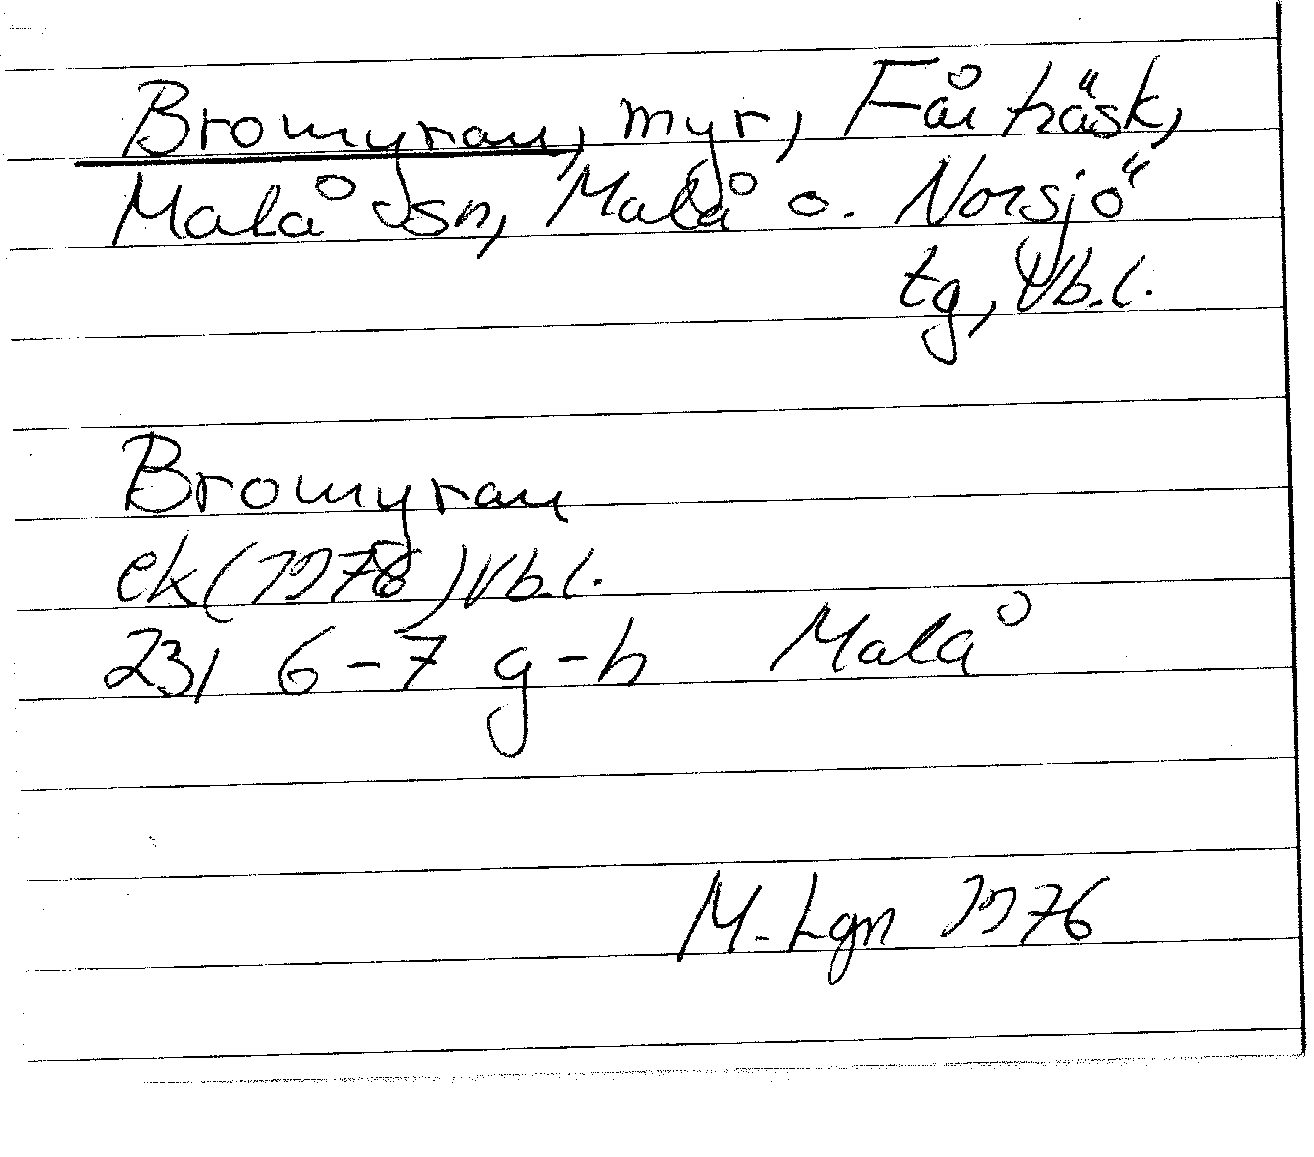 Bromyran, myr, Fårträsk,
Malå sn, Malå o. Norsjö
tg, Vb.l.
Bromyran
ek (1976) Vb.l.
23I 6-7 g-h Malå
M. Lgn 1976